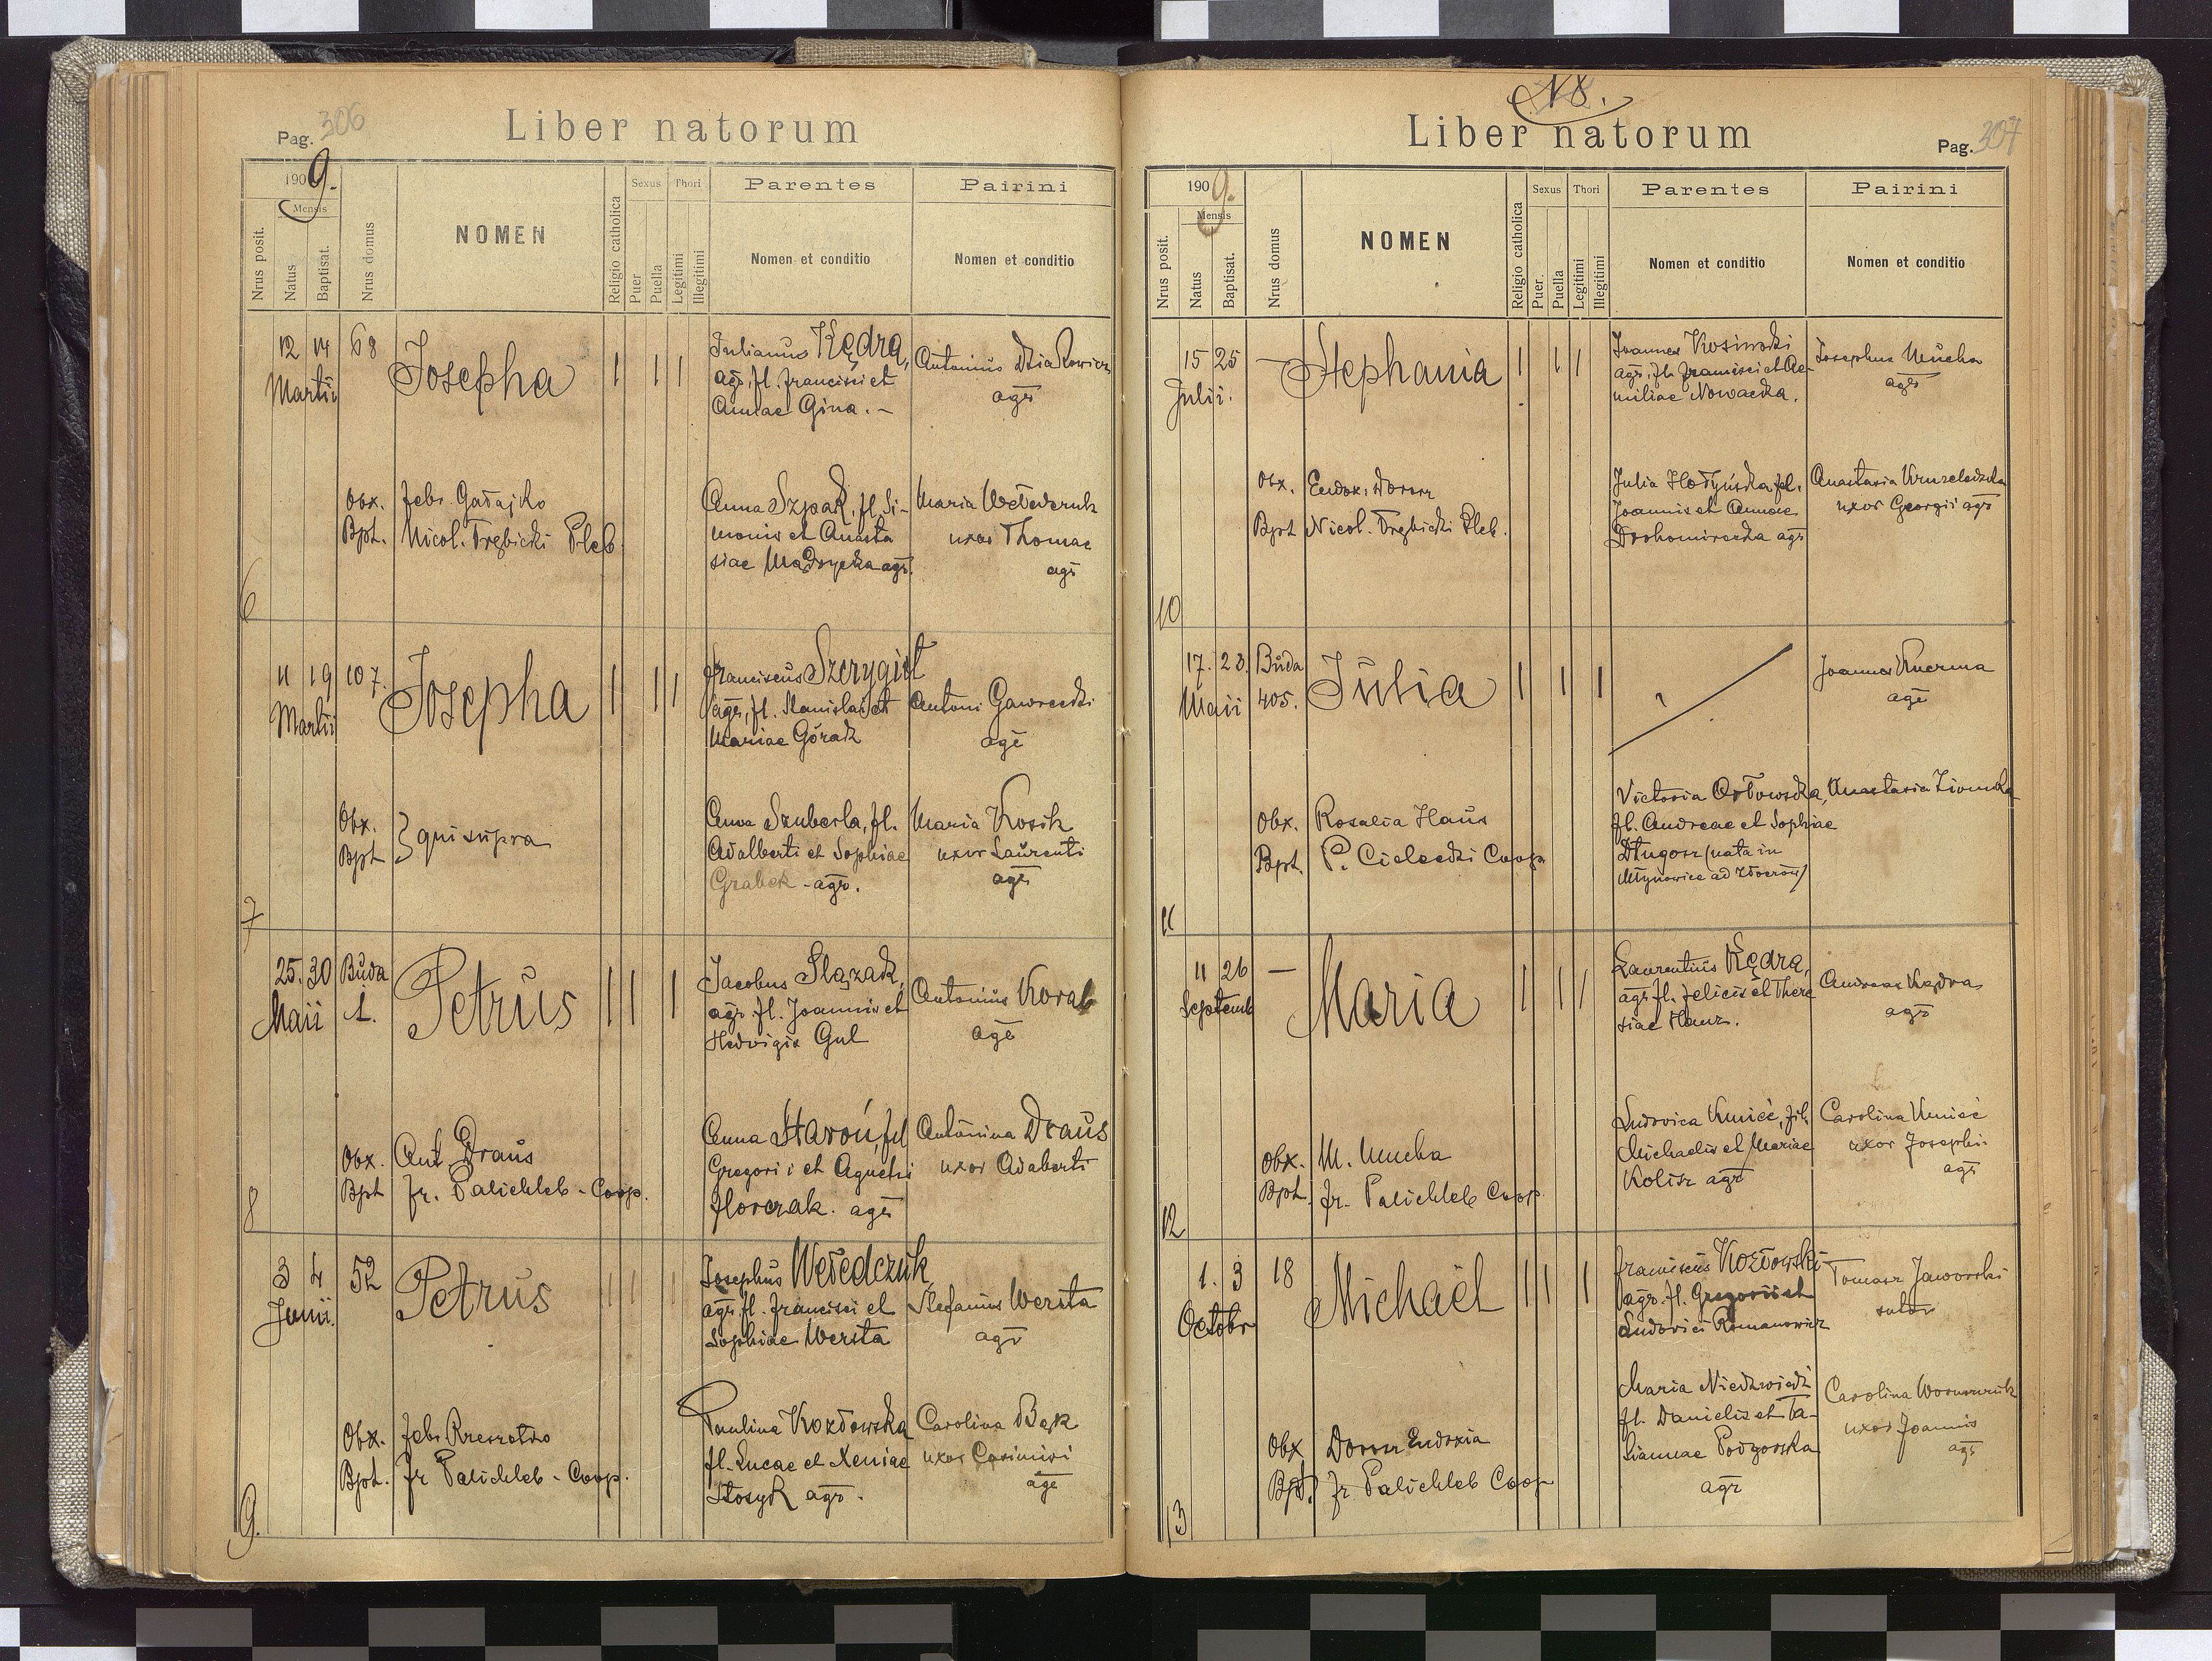 Pag. 306
Liber natorum
1909.
Mensis
Nrus posit.
Natus
Baptisat.
Nrus domus
NOMEN
Religio catholica
Sexus
Puer
Puella
Thori
Legitimi
Illegitimi
Parentes
Nomen et conditio
Pairini
Nomen et conditio
6
12 14
Martii
68
Josepha
1 1 1
Julianus Kędra,
agr. fl. Francisci et
Annae Gina. -
Antonius
agr
Obx. Febr. Gadajko
Bpt. Nicol. Trębicki Pleb.
Anna Szpak, fl. Si-
monis et Anasta
siae Mądrycka agr.
Maria Wełedczuk
uxor Thomae
agr
7
11 19
Martii
107.
Josepha
1 1 1
Franciscus Szczygieł
agr, fl. Stanislai et
Mariae Górak
Antoni Gawrecki
agr
Obx.
Bpt } qui supra
Anna Szuberla, fl.
Adalberti et Sophiae
Grabek - agr.
Maria Kosik
uxor Laurenti
agr
8
25. 30
Maii
Buda
1.
Petrus
1 1 1
Jacobus Slązak,
agr. fl. Joannis et
Hedvigis Gul
Antonius Korab
agr
Obx. Ant. Draus
Bpt Fr. Palichleb - Coop.
Anna Staroń, fl
Gregorii et Agnetis
Florczak. agr
Antonina Draus
uxor Adalberti
9.
3 4
Junii.
52
Petrus
1 1 1
Josephus Wełedczuk
agr. fl. Francisci et
Sophiae Wersta
Stefanus Wersta
agr
Obx. Febr. Rzeszotko
Bpt. Fr Palichleb - Coop.
Paulina Kozłowska
fl. Lucae et Xeniae
Stosyk agr.
Carolina Bąk
uxor Casimiri
agr
N8.
Liber natorum
Pag. 307
1909.
Mensis
Nrus posit.
Natus
Baptisat.
Nrus domus
NOMEN
Religio catholica
Sexus
Puer.
Puella
Thori
Legitimi
Illegitimi
Parentes
Nomen et conditio
Pairini
Nomen et conditio
10
15 25
Julii.
Stephania
1 1 1
Joannes Kosinski
agr. fl. Francisci et Ae-
miliae Nowacka.
Josephus Mucha
agr
Obx. Eudox. Dorosz
Bpt Nicol. Trębicki Pleb.
Julia Hołyńska, fl.
Joannis et Annae
Drohomirecka agr
Anastasia
uxor Georgii agr
11
17. 23.
Maii
Buda
405.
Julia
1 1 1
Joannes Kuczma
agr
Obx. Rosalia Haus
Bpt. P. Cielecki Coop
Victoria Orłowska,
fl. Andreae et Sophiae
Długosz (nata in
Młynowice ad Zborów)
Anastasia Ziomka
12
11 26
Septemb
—
Maria
1 1 1
Laurentius Kędra,
agr. fl. Felicis et There
siae Haus.
Andreas Kędra
agr
Obx. M. Mucha
Bpt. Fr. Palichleb Coop.
Ludovica Kmieć, fil.
Michaelis et Mariae
Kolisz agr
Carolina Kmieć
uxor Josephi
agr
13
1. 3
Octobr
18
Michaël
1 1 1
Franciscus Kozłowski
agr. fl. Gregorii et
Ludovici Romanowicz
Tomasz Jaworski
sutor
Obx Dorosz Eudoxia
Bpt. Fr. Palichleb Coop
Maria Niedzwiedz
fl. Danielis et Ta-
tiannae Podgorska
agr
Carolina
uxor Joannis
agr